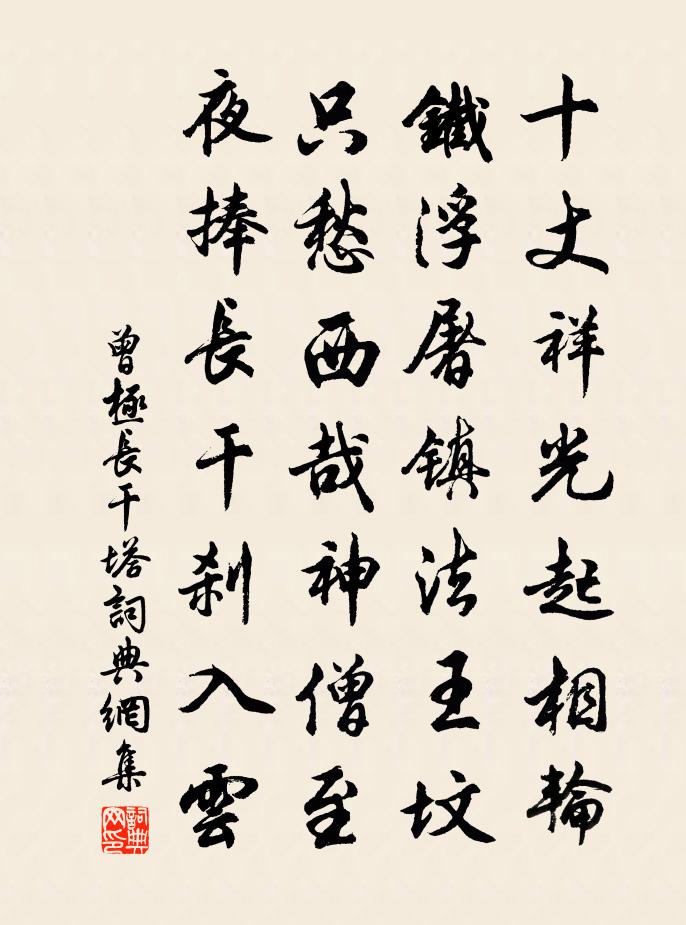 十丈祥光起相輪
鐵浮屠鎮法王墳
只愁西哉神僧至
夜捧長干刹入雲
曾極長干塔詞典網集
詞典網印